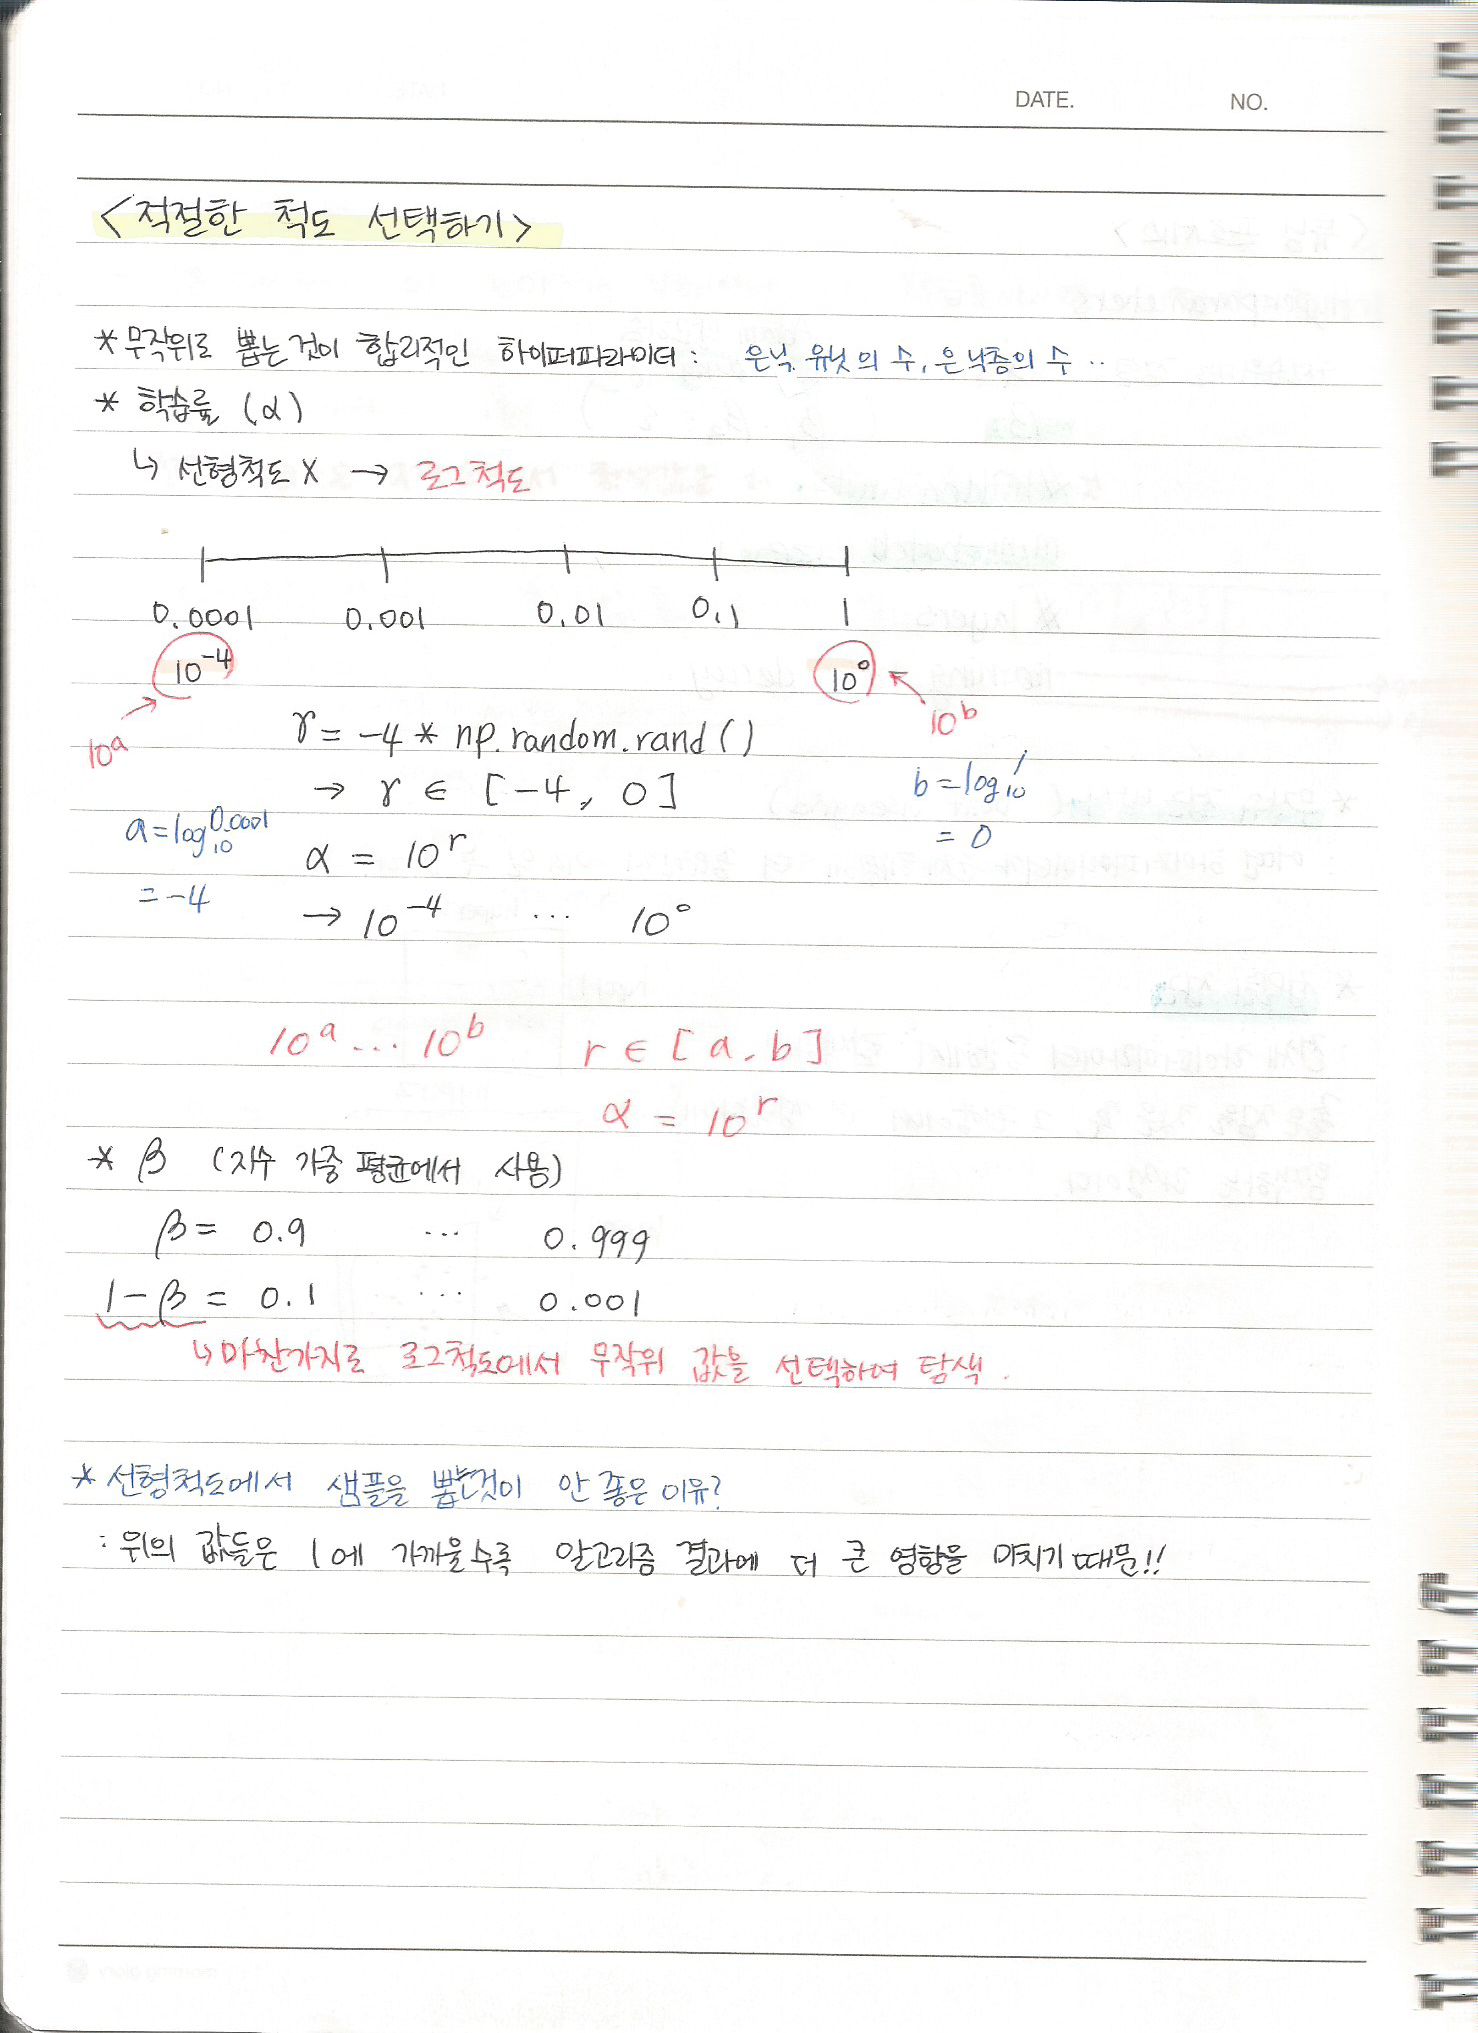 DATE. NO.
<적절한 척도 선택하기>
* 무작위로 뽑는것이 합리적인 하이퍼파라미터 : 은닉 유닛의 수, 은닉층의 수 ..
* 학습률 (α)
↳ 선형척도 X → 로그척도
0.0001 0.001 0.01 0.1 1
10⁻⁴ 10⁰
10ᵃ 10ᵇ
r = -4 * np.random.rand()
→ r ∈ [-4, 0]
a = log₁₀0.0001
= -4
b = log₁₀1
= 0
α = 10ʳ
→ 10⁻⁴ ... 10⁰
10ᵃ ... 10ᵇ r ∈ [a, b]
α = 10ʳ
* β (지수 가중 평균에서 사용)
β = 0.9 ... 0.999
1-β = 0.1 ... 0.001
↳ 마찬가지로 로그척도에서 무작위 값을 선택하여 탐색.
* 선형척도에서 샘플을 뽑는것이 안 좋은 이유?
: 위의 값들은 1에 가까울수록 알고리즘 결과에 더 큰 영향을 미치기 때문!!